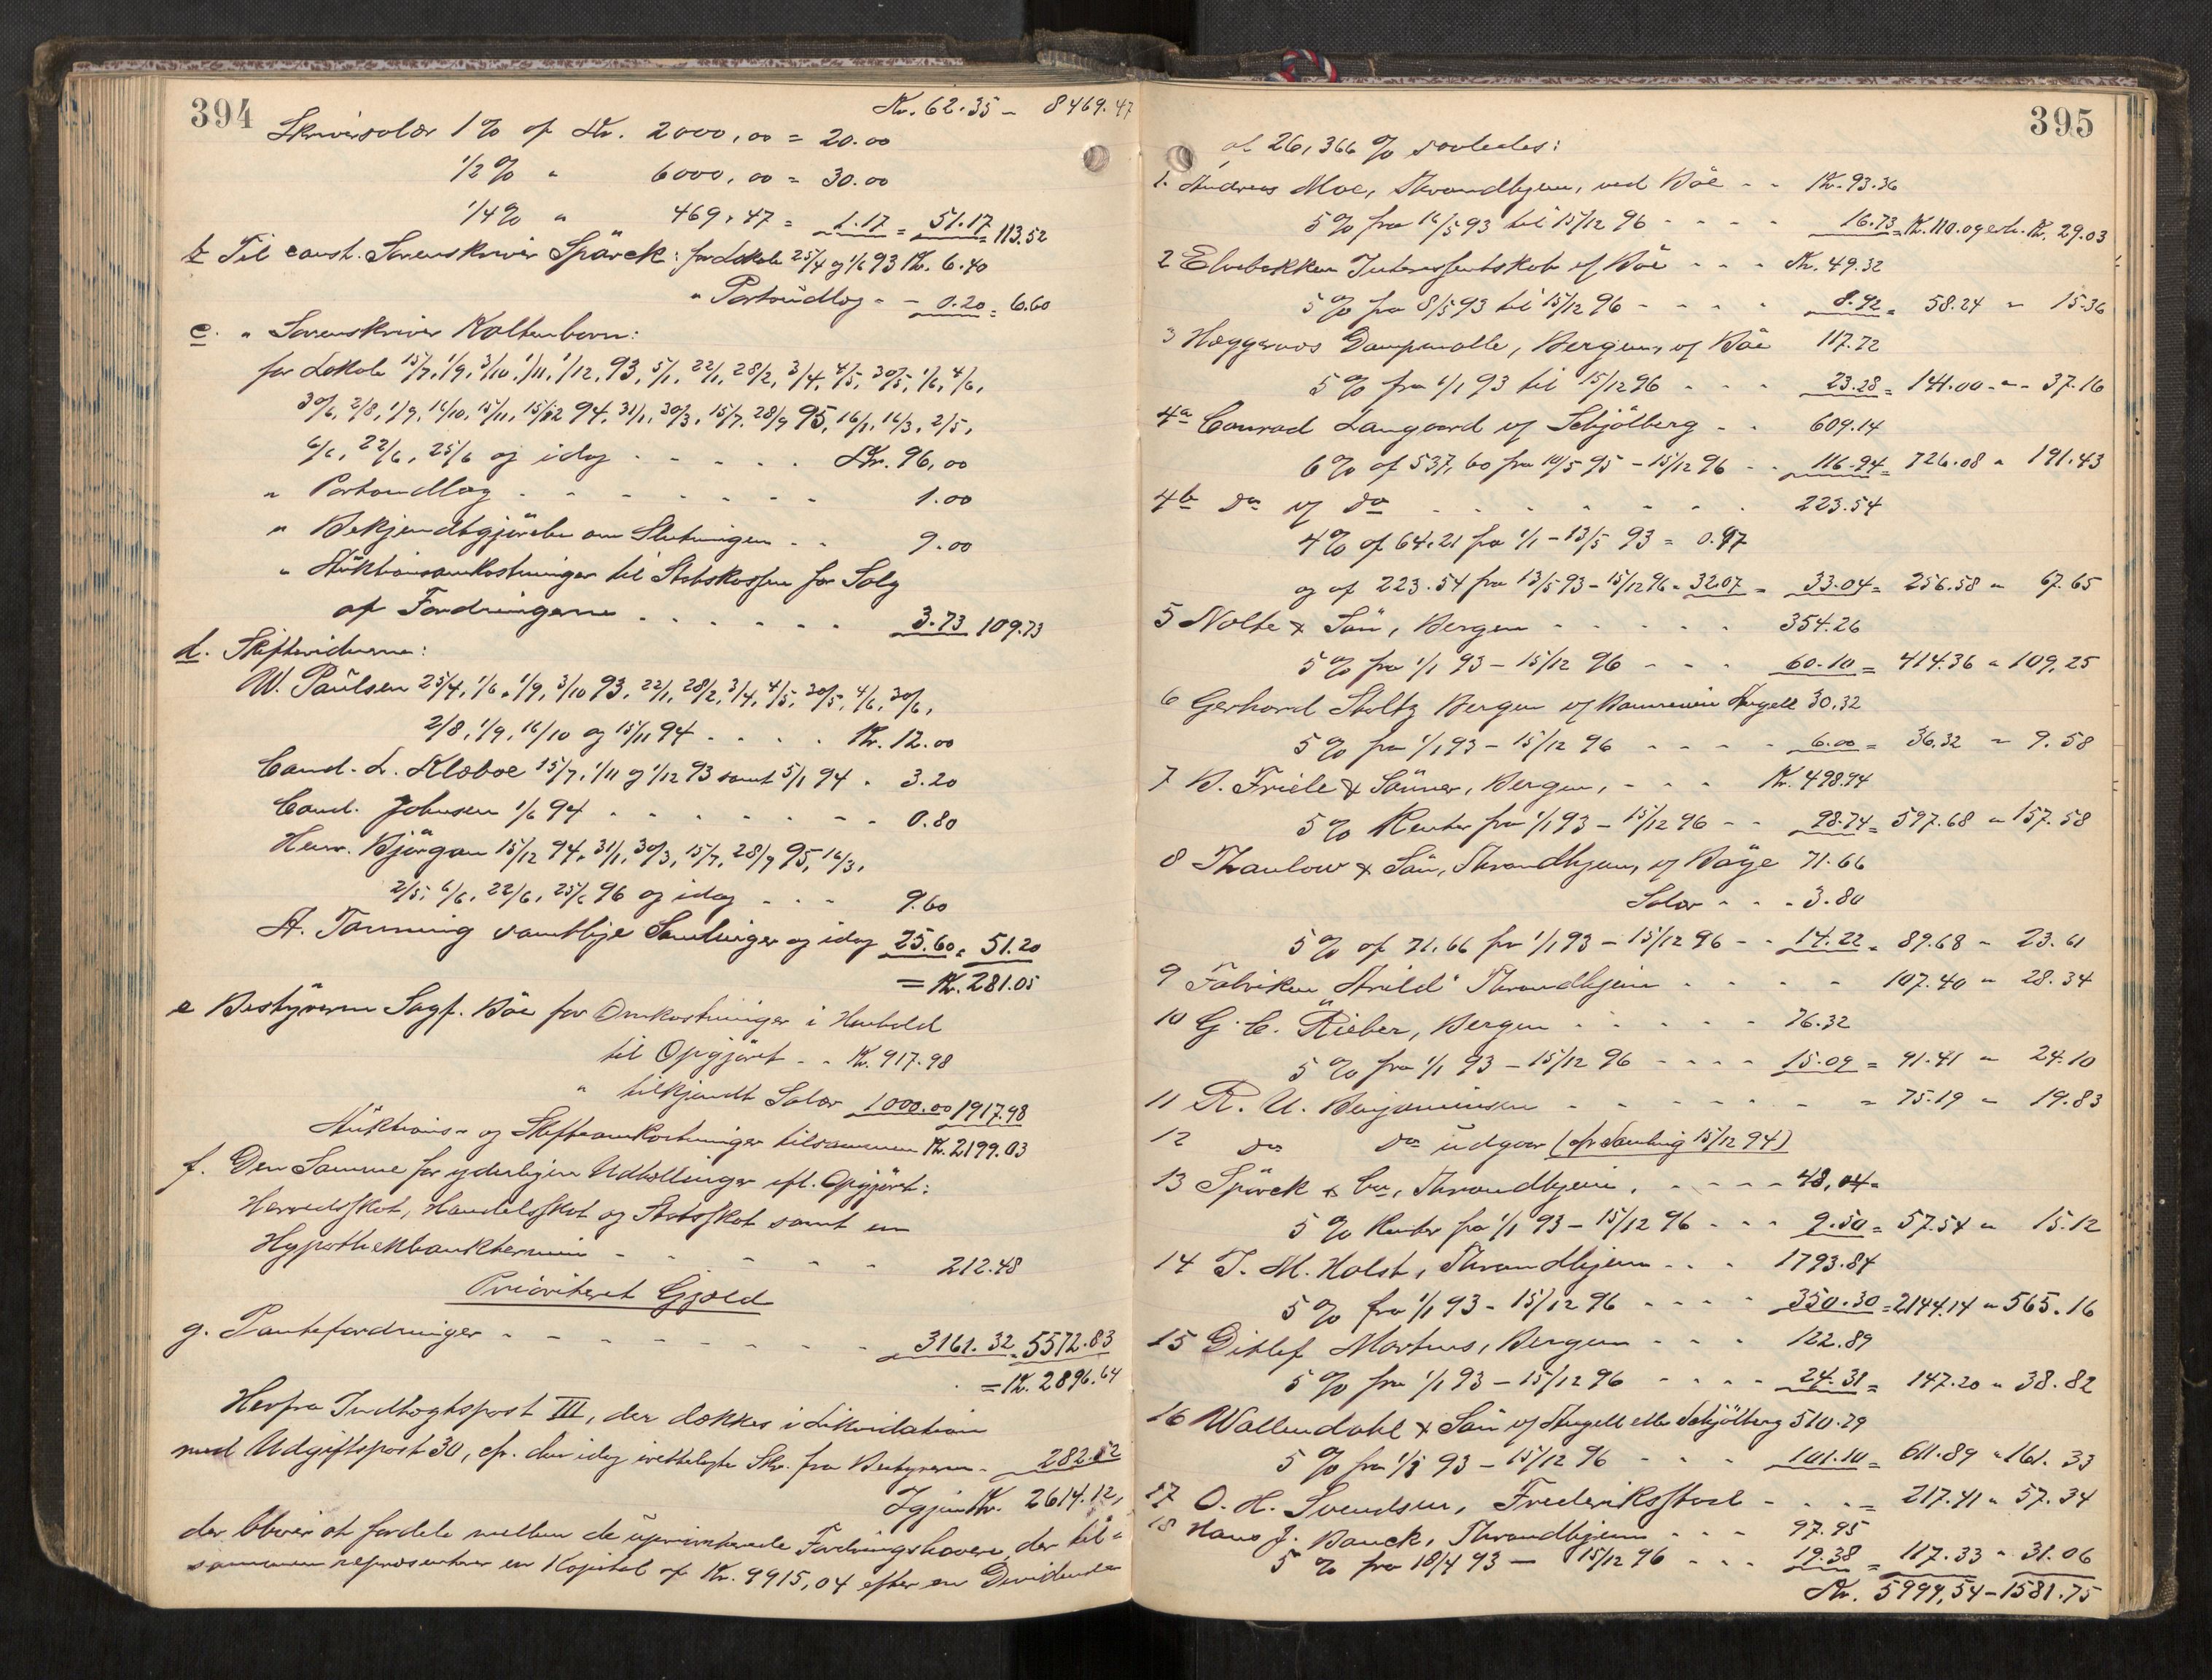 394
Kr. 62.35 – 8469.47
Skriversalær 1% af Kr. 2000,00 = 20.00
1/2% " 6000,00 = 30.00
1/4% " 469,47 = 1.17 = 51.17 = 113.52
b Til const. Sorenskriver Spärck: for Lokale 25/4 og 1/6 93 Kr. 6.40
" Portoudlæg " – 0.20 = 6.60
c. " Sorenskriver Koltenborn:
for Lokale 15/7, 1/9, 3/10, 1/11, 1/12, 93, 5/1, 22/1, 28/2, 3/4, 4/5, 30/5, 1/6, 4/6,
30/6, 2/8, 1/9, 16/10, 15/11, 15/12 94, 31/1, 30/3, 15/7, 28/9 95, 16/1, 16/3, 2/5,
6/6, 22/6, 25/6 og idag - - - - - Kr. 96,00
" Portoudlæg - - - - - - - 1.00
" Bekjendtgjörelse om Slutningen - - 9.00
" Auktionsomkostninger til Statskassen for Salg
af Fordringerne - - - - - - 3.73 109.73
d. Skiftevidnerne:
W. Paulsen 25/4, 1/6, 1/9, 3/10 93, 22/1, 28/2, 3/4, 4/5, 30/5, 4/6, 30/6,
2/8, 1/9, 16/10 og 15/11 94 - - - - Kr. 12.00
Cand. L. Klæboe 15/7, 1/11 og 1/12 93 samt 5/1 94 - 3.20
Cand. Johnsen 1/6 94 - - - - - - - 0.80
Henr. Björgan 15/12 94, 31/1, 30/3, 15/7, 28/9 95, 16/3,
2/5, 6/6, 22/6, 25/6 96 og idag - - - 9.60
A. Tanning samtlige Samlinger og idag 25.60 = 51.20
= Kr. 281.05
e Bestyreren Sagf. Böe for Omkostninger i Henhold
til Opgjöret - - Kr. 917.98
" tilkjendt Salær 1000.00 1917.98
Auktions- og Skifteomkostninger tilsammen Kr. 2199.03
f. Den Samme for yderligere Udtællinger efl. Opgjöret:
Herredsskat, Handelsskat og Statsskat samt en
Hypothekbanktermin - - - - - 212.48
Prioriteret Gjæld
g. Pantefordringer - - - - - - - 3161.32 = 5572.83
= Kr. 2896.64
Herfra Indtægtspost III, der dækkes i Likvidation
med Udgiftspost 30, cfr. den idag irettelagte Skr. fra Bestyreren - 282.52
Igjen Kr. 2614.12,
der bliver at fordele mellem de uprioriterede Fordringshavere, der til-
sammen repræsenterer en Kapital af Kr. 9915,04 efter en Dividende
395
af 26,366 % saaledes:
1. Andreas Moe, Throndhjem, ved Böe - - Kr. 93.36
5% fra 16/5 93 til 15/12 96 - - - - 16.73 = Kr. 110.09 erh. Kr. 29.03
2 Elvebakken Interessentskab v/ Böe - - - Kr. 49.32
5% fra 8/5 93 til 15/12 96 - - - - - 8.92 = 58.24 " 15.36
3 Hæggernæs Dampmølle, Bergen, v/ Böe 117.72
5% fra 1/1 93 til 15/12 96 - - - 23.28 = 141.00 - " - 37.16
4a Conrad Langaard v/ Schjölberg - - 609.14
6% af 537,60 fra 10/5 95 – 15/12 96 - - 116.94 = 726.08 " 191.43
4b Do v/ Do - - - - - - - 223.54
4% af 64.21 fra 1/1 – 13/5 93 = 0.97
og af 223.54 fra 13/5 93 – 15/12 96 = 32.07 = 33.04 = 256.58 " 67.65
5 Nolte & Sön, Bergen - - - - - 354.26
5% fra 1/1 93 – 15/12 96 - - - 60.10 = 414.36 " 109,25
6 Gerhard Stoltz Bergen v/ Angell 30,32
5% fra 1/1 93 – 15/12 96 - - - - 6.00 = 36,32 " 9.58
7 B. Friele & Sönner, Bergen, - - - Kr. 498.94
5% Renter fra 1/1 93 – 15/12 96 - - 98.74 = 597.68 " 157.58
8 Thaulow & Sön, Throndhjem, v/ Böye 71.66
Salær - - - 3.80
5% af 71.66 fra 1/1 93 – 15/12 96 - - 14.22 = 89.68 " 23.61
9 Fabriken "Arild" Throndhjem - - - - - 107.40 " 28.34
10 G. C. Rieber, Bergen - - - - - 76.32
5% fra 1/1 93 – 15/12 96 - - - - 15.09 = 91.41 " 24.10
11 R. U. Benjaminsen - - - - - - - = 75.19 " 19.83
12 Do Do udgaar (cfr Samling 15/12 94)
13 Spörck & Co, Throndhjem, - - - - 48,04 =
5% Renter fra 1/1 93 – 15/12 96 - - - 9.50 = 57.54 " 15.12
14 J. M. Holst, Throndhjem - - - 1793.84
5% fra 1/1 93 – 15/12 96 - - - - 350.30 = 2144.14 " 565.16
15 Ditlef Martens, Bergen - - - 122.89
5% fra 1/1 93 – 15/12 96 - - - - 24.31 = 147.20 " 38.82
16 Wallendahl & Sön v/ Angell eller Schjölberg 510.79
5% fra 1/1 93 – 15/12 96 - - - 101.10 = 611.89 " 161.33
17 O. H. Svendsen, Frederiksstad - - - = 217.41 " 57.34
18 Hans J. Bauck, Throndhjem - - - 97.95
5% fra 18/4 93 – 15/12 96 - - - 19.38 = 117.33 " 31.06
Kr. 5999,54 – 1581.75